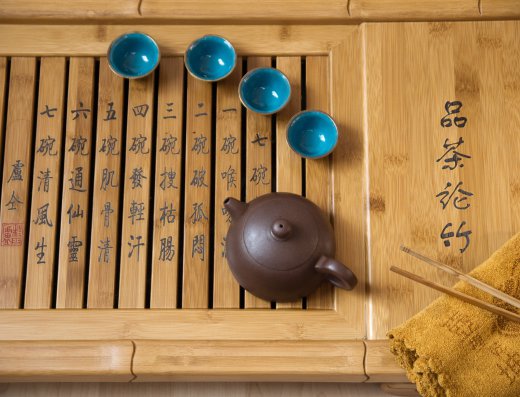 品茶论竹
七碗
一碗喉吻
二碗破孤悶
三碗搜枯腸
四碗發輕汗
五碗肌骨清
六碗通仙靈
七碗清風生
盧仝